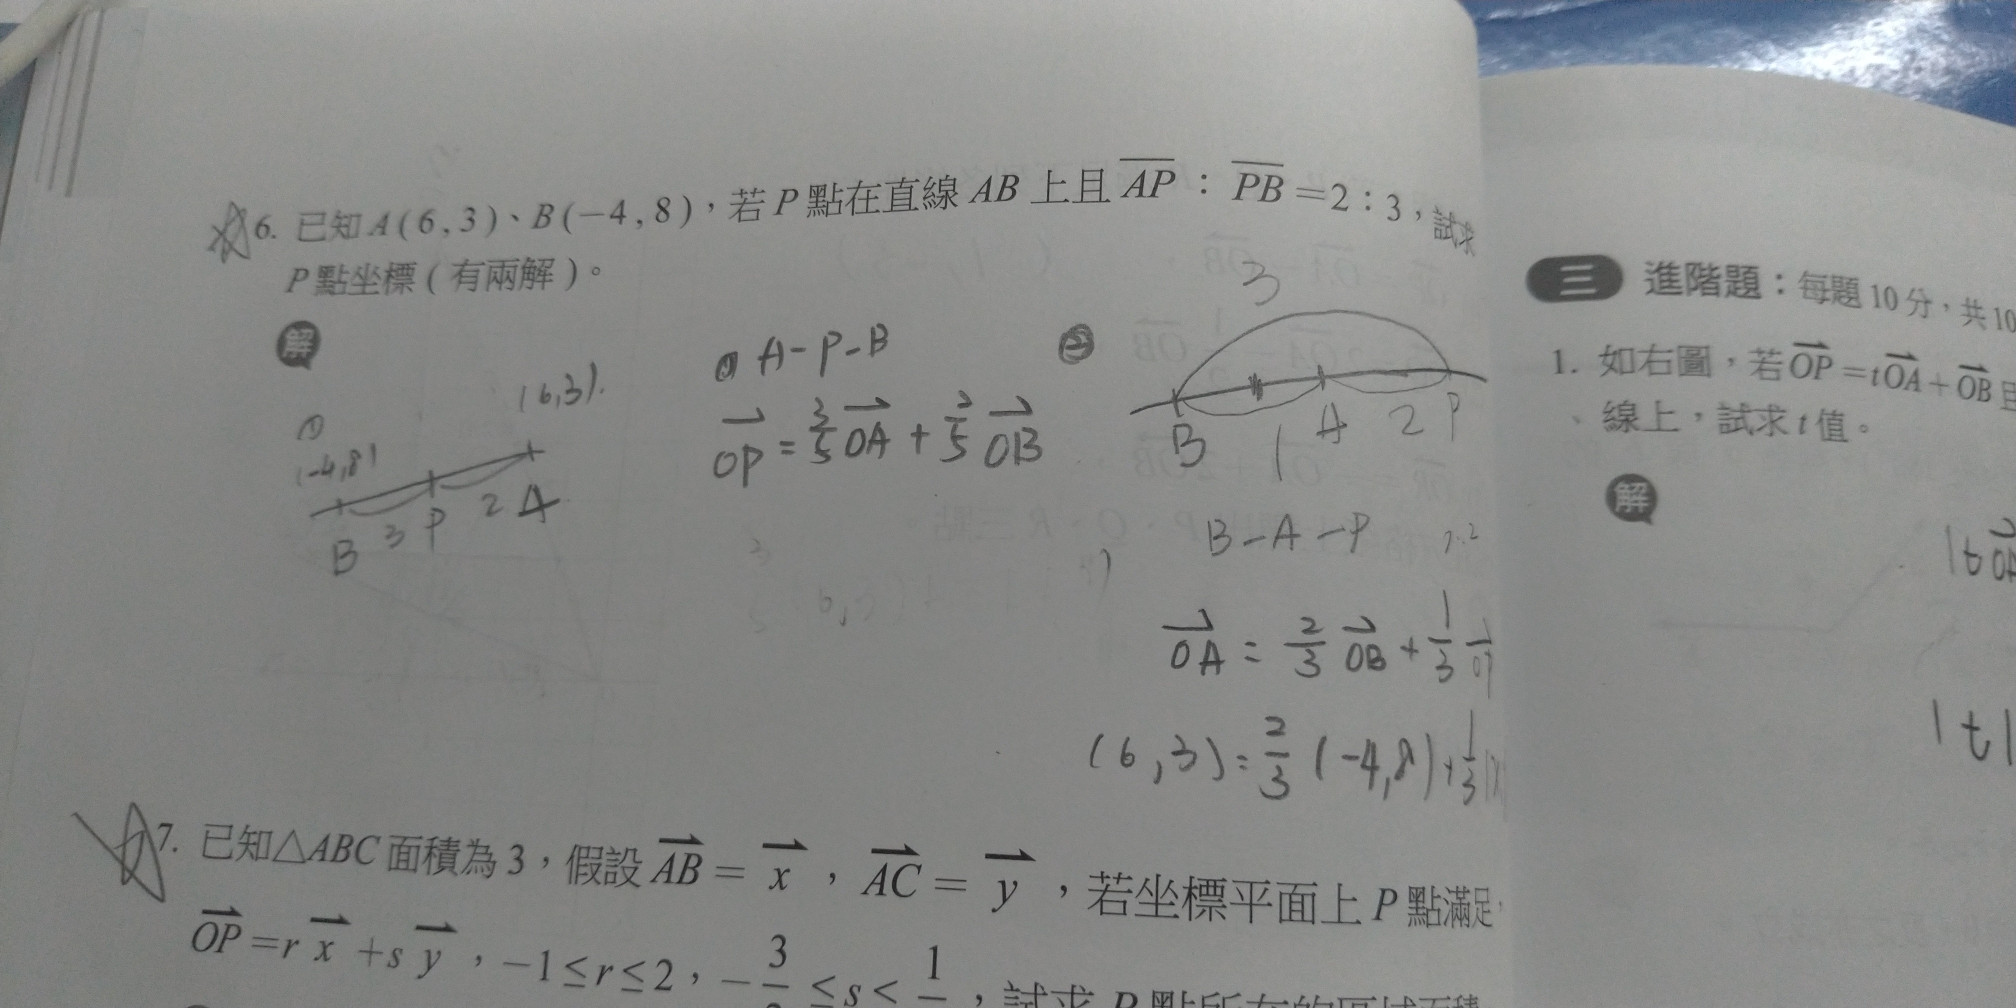 6. 已知 A(6,3)、B(−4,8)，若 P 點在直線 AB 上且 \overline{AP}：\overline{PB}=2：3，試求
P 點坐標(有兩解)。
解
① A-P-B
(6,3).
①
(-4,8)
B 3 P 2 A
\overrightarrow{OP} = \frac{3}{5}\overrightarrow{OA} + \frac{2}{5}\overrightarrow{OB}
②
3
B 1 A 2 P
B-A-P
\overrightarrow{OA} = \frac{2}{3}\overrightarrow{OB} + \frac{1}{3}
(6,3) = \frac{2}{3}(-4,8) + \frac{1}{3}
7. 已知△ABC 面積為 3，假設 \overrightarrow{AB} = \overrightarrow{x}，\overrightarrow{AC} = \overrightarrow{y}，若坐標平面上 P 點滿足
\overrightarrow{OP} = r\overrightarrow{x} + s\overrightarrow{y}，−1≤r≤2，
三 進階題：每題 10 分，共 10
1. 如右圖，若 \overrightarrow{OP} = t\overrightarrow{OA} + \overrightarrow{OB} 且
線上，試求 t 值。
解